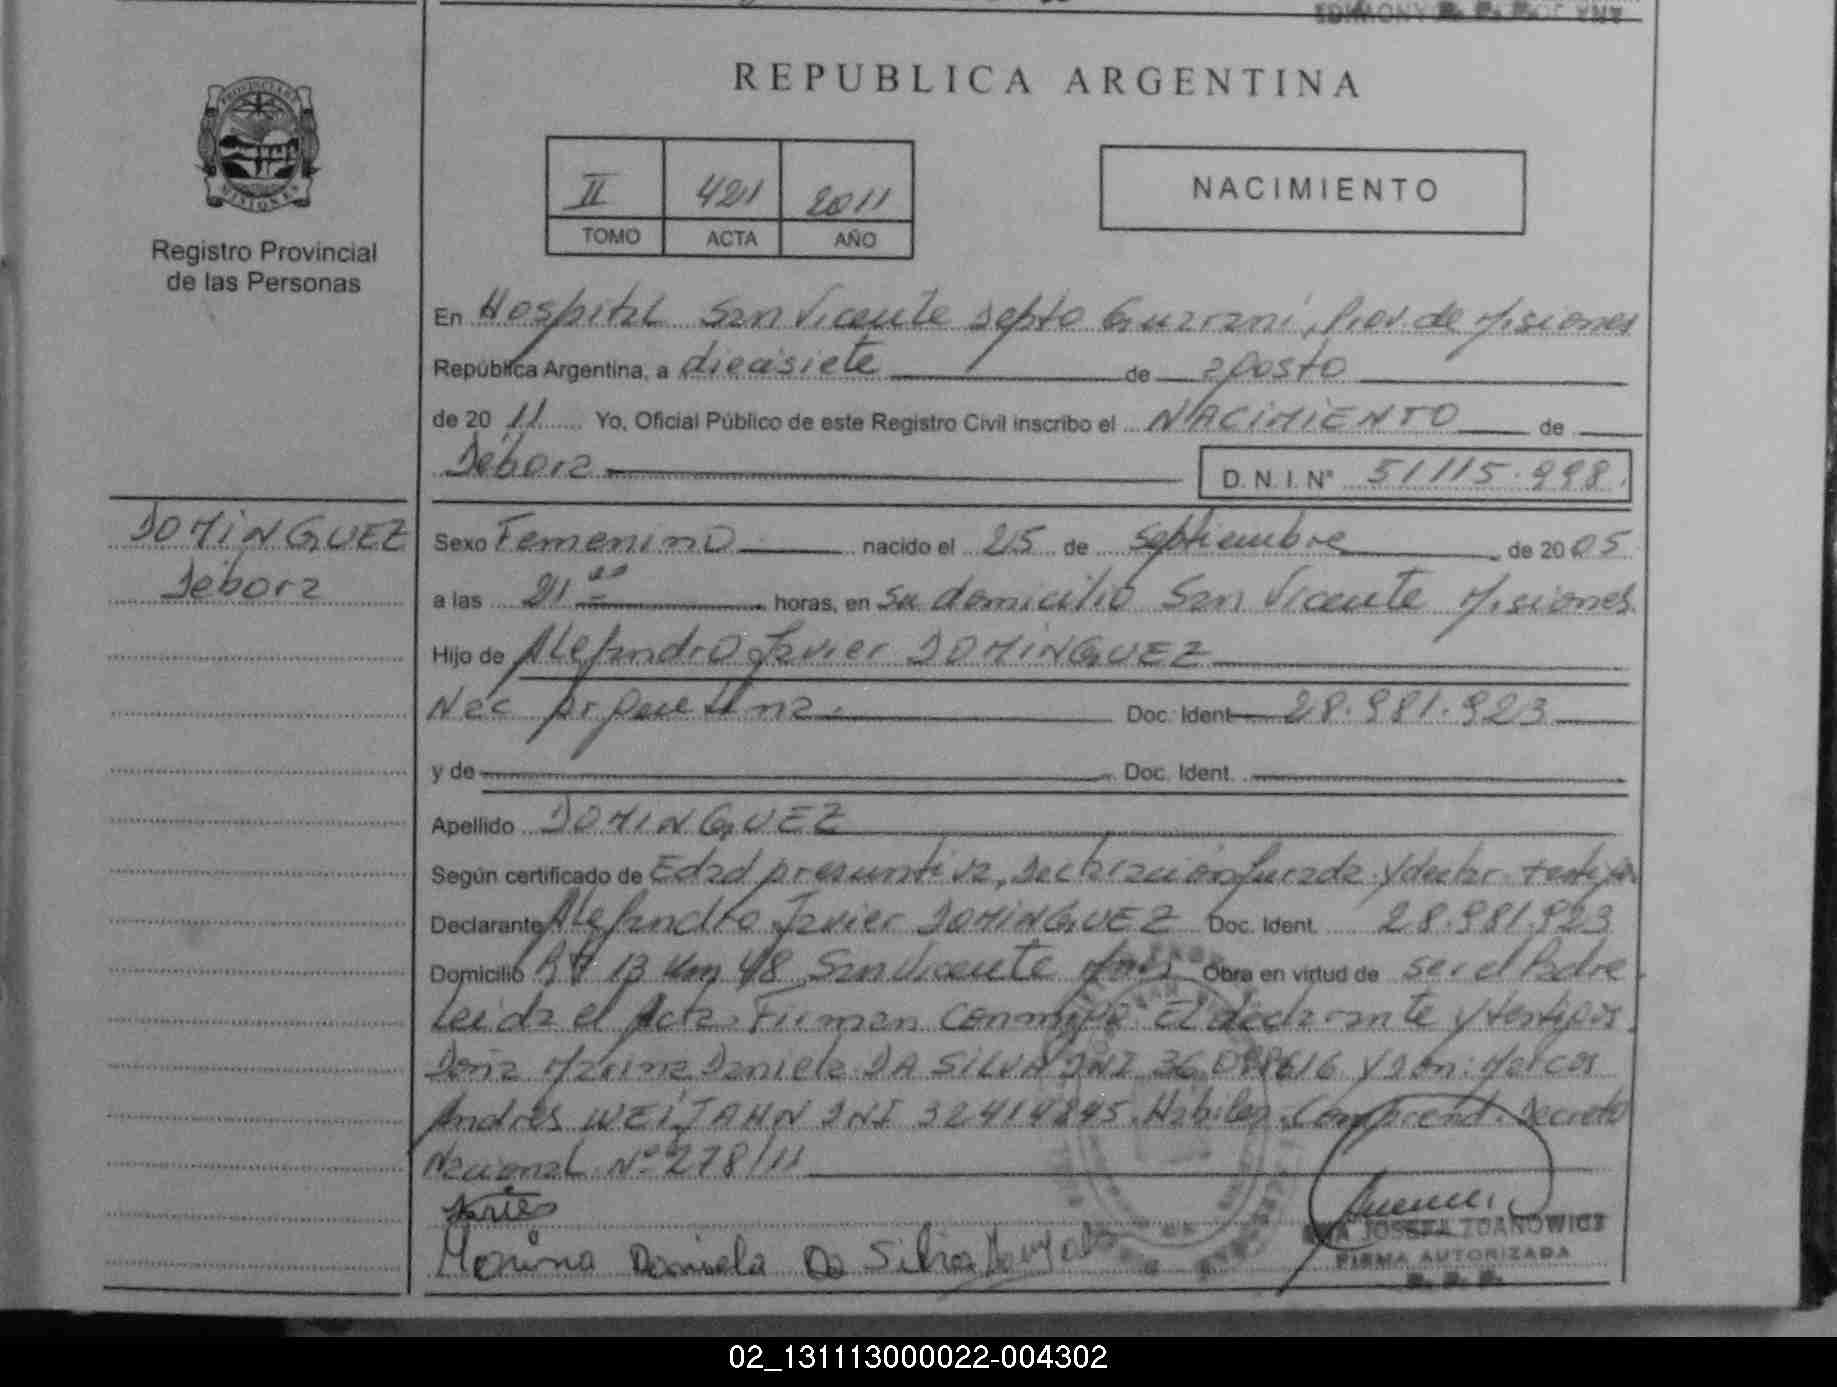 REPUBLICA ARGENTINA
PROVINCIA DE
MISIONES
Registro Provincial
de las Personas
II 421 2011
TOMO ACTA AÑO
NACIMIENTO
En Hospital San Vicente Depto Guarani, Prov. de Misiones
República Argentina, a diecisiete de agosto
de 2011 Yo, Oficial Público de este Registro Civil inscribo el NACIMIENTO de
Débora D. N. I. N° 51115.998.
DOMINGUEZ
Débora
Sexo Femenino nacido el 25 de septiembre de 2005
a las 21 00 horas, en su domicilio San Vicente Misiones
Hijo de Alejandro Javier DOMINGUEZ
Nac Argentina. Doc. Ident 28.981.923
y de Doc. Ident.
Apellido DOMINGUEZ
Según certificado de Edad presuntiva, Declaracion Jurada y declar. testigos
Declarante Alejandro Javier DOMINGUEZ Doc. Ident. 28.981.923
Domicilio 13 Km 48 San Vicente Mnes Obra en virtud de ser el Padre.
Leida el Acta. Firman conmigo El declarante y testigos.
Doña Marina Daniela DA SILVA DNI y Don: Marcos
Andrés DNI 32414845. Habiles. Comprend. Decreto
Nacional N° 278/11
Marina Daniela Da Silva
JOSEFA ZDANOWICZ
FIRMA AUTORIZADA
R. P. P.
02_131113000022-004302